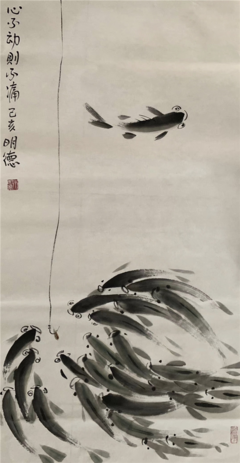 心不动则不痛己亥明德